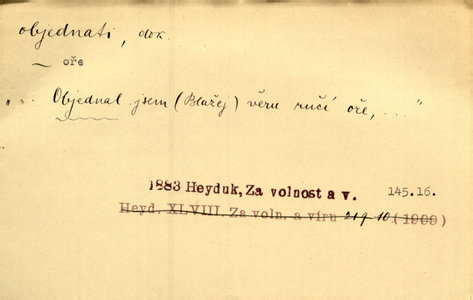 objednati, dok.
~ oře
„... Objednal jsem (Blažej) věru ručí oře, ..."
1883 Heyduk, Za volnost a v. 145.16.
Heyd. XLVIII. Za voln. a víru 219 10 (1909)